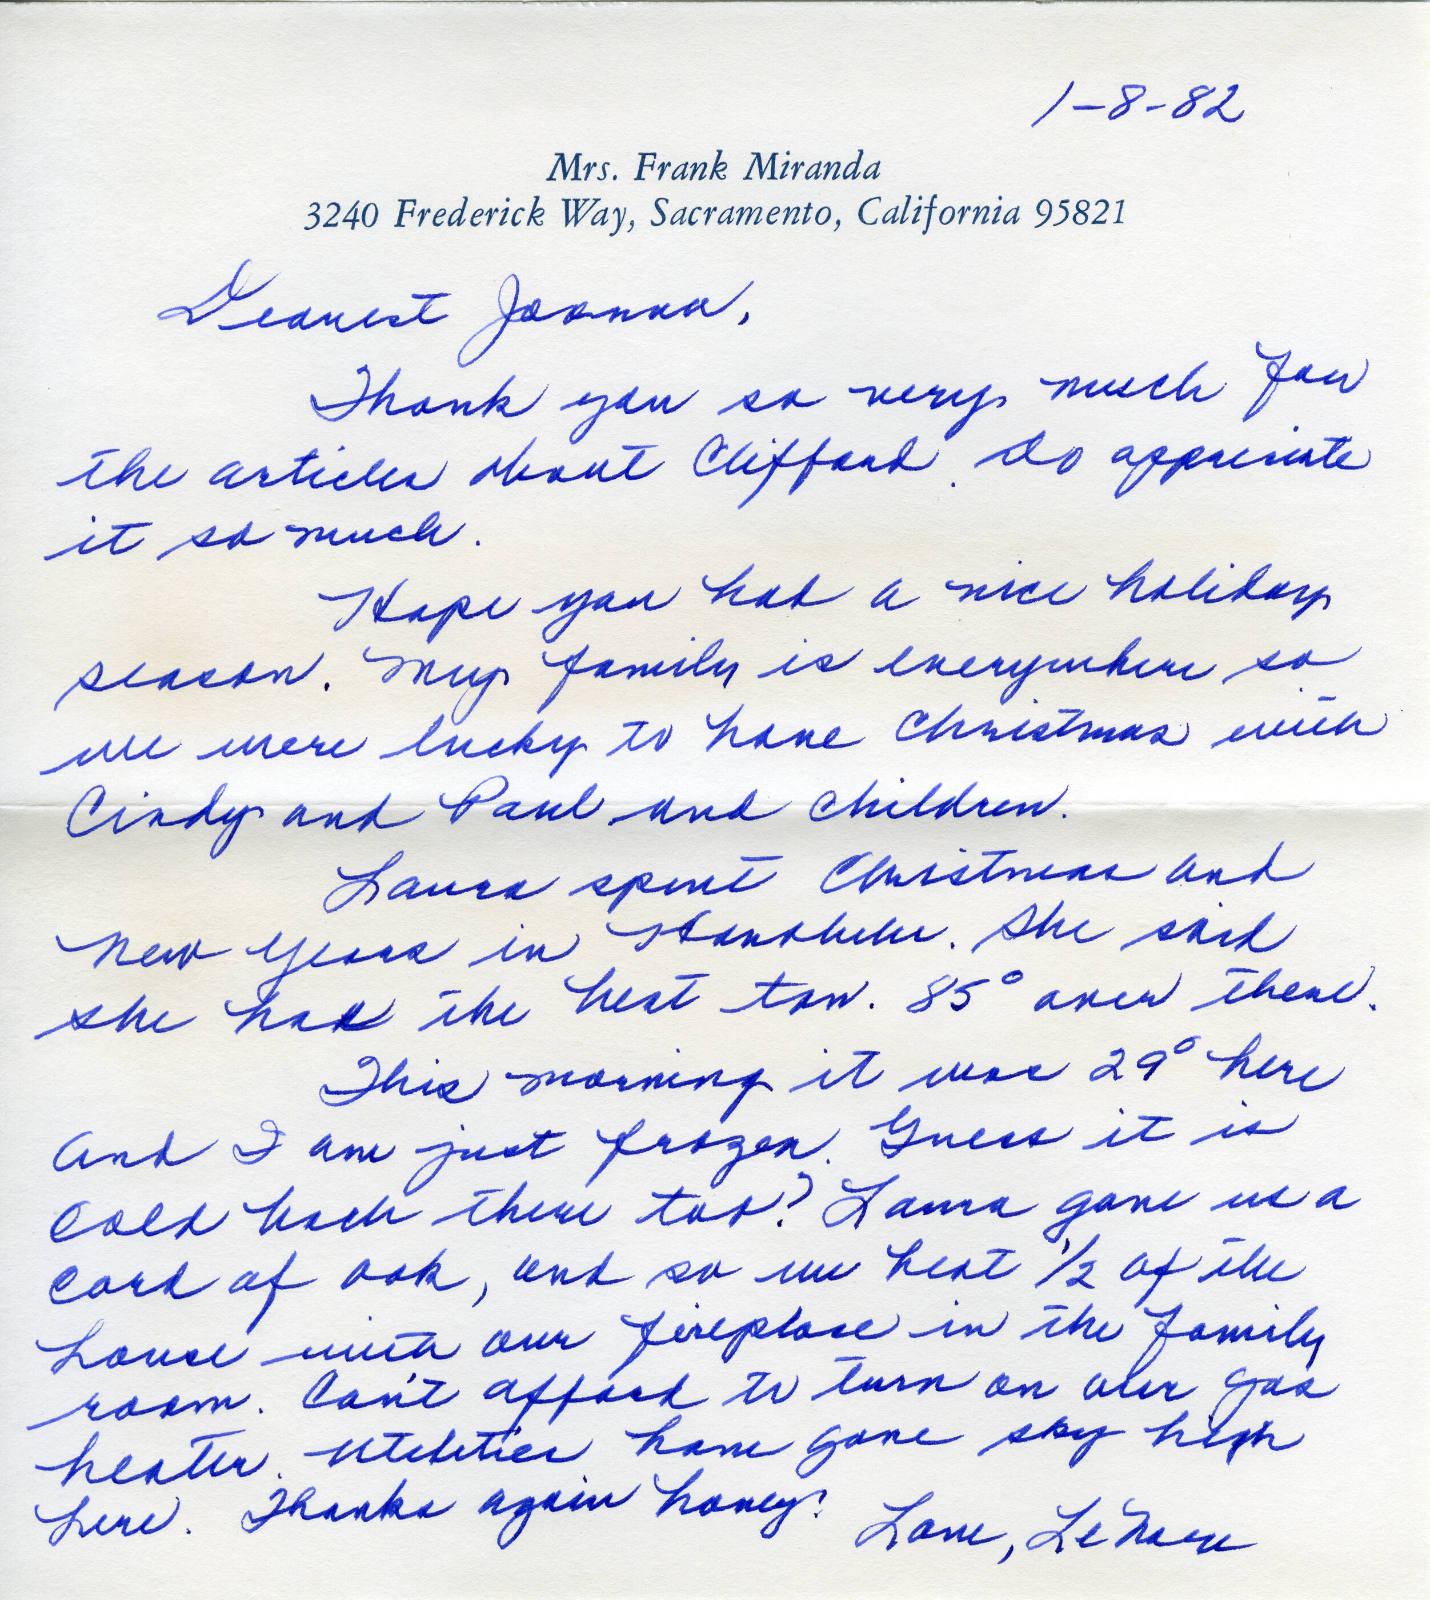 1-8-82
Mrs. Frank Miranda
3240 Frederick Way, Sacramento, California 95821
Dearest Joanna,
Thank you so very much for
the articles about Clifford. Do appreciate
it so much.
Hope you had a nice holiday
season. My family is everywhere so
we were lucky to have Christmas with
Cindy and Paul and children.
Laura spent Christmas and
New Years in Honolulu. She said
she had the heat too. 85° over there.
This morning it was 29° here
and I am just frozen. Guess it is
cold back there too? Laura gave us a
cord of oak, and so we heat 1/2 of the
house with our fireplace in the family
room. Can't afford to turn on our gas
heater. Utilities have gone sky high
here. Thanks again honey!
Love, LeNore